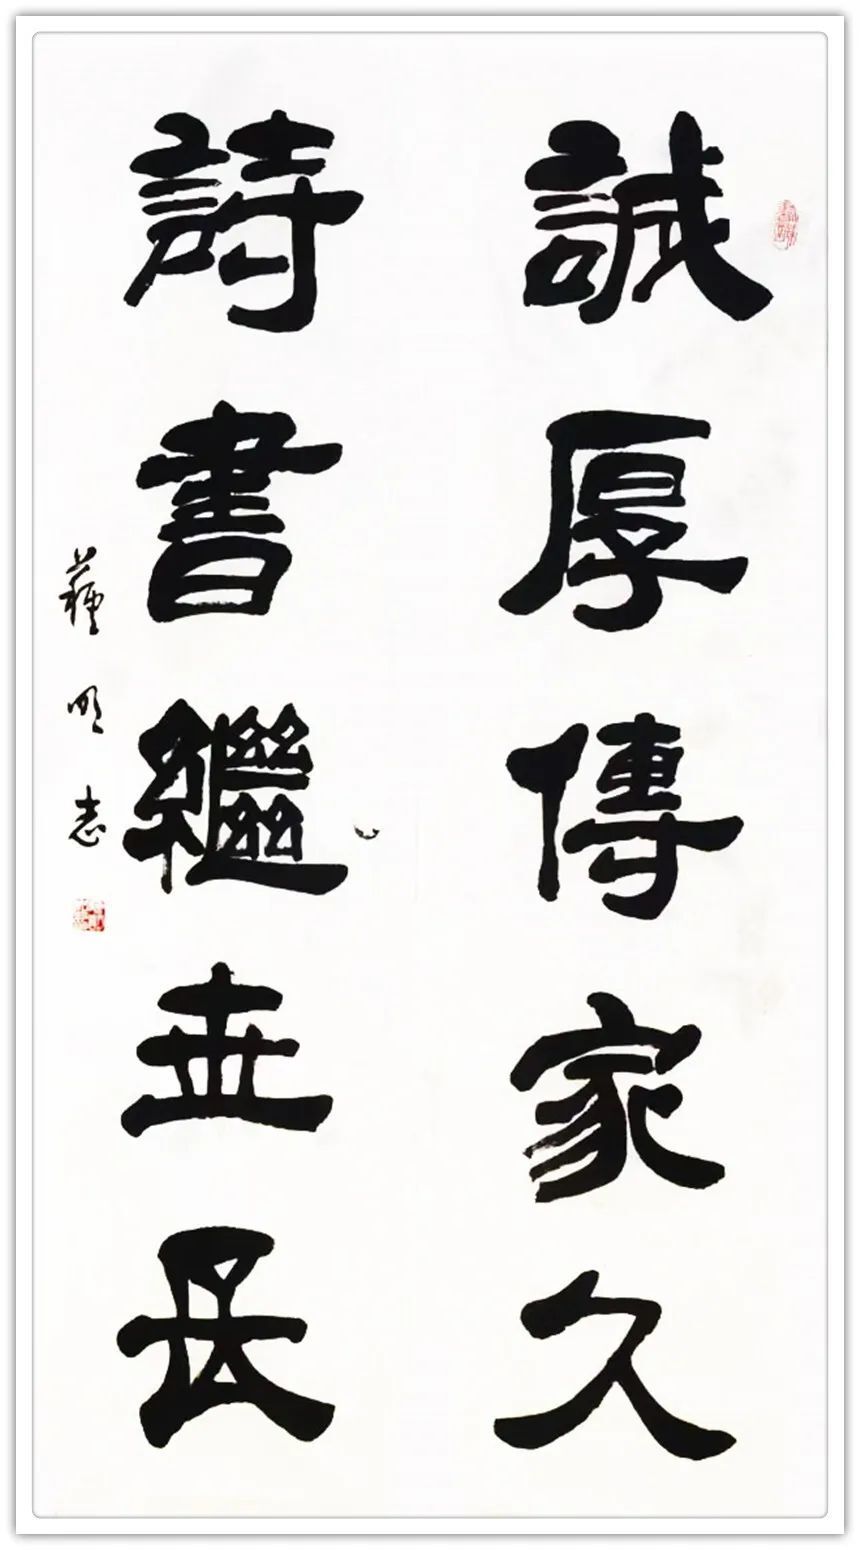 誠厚傳家久
詩書繼世長
明志